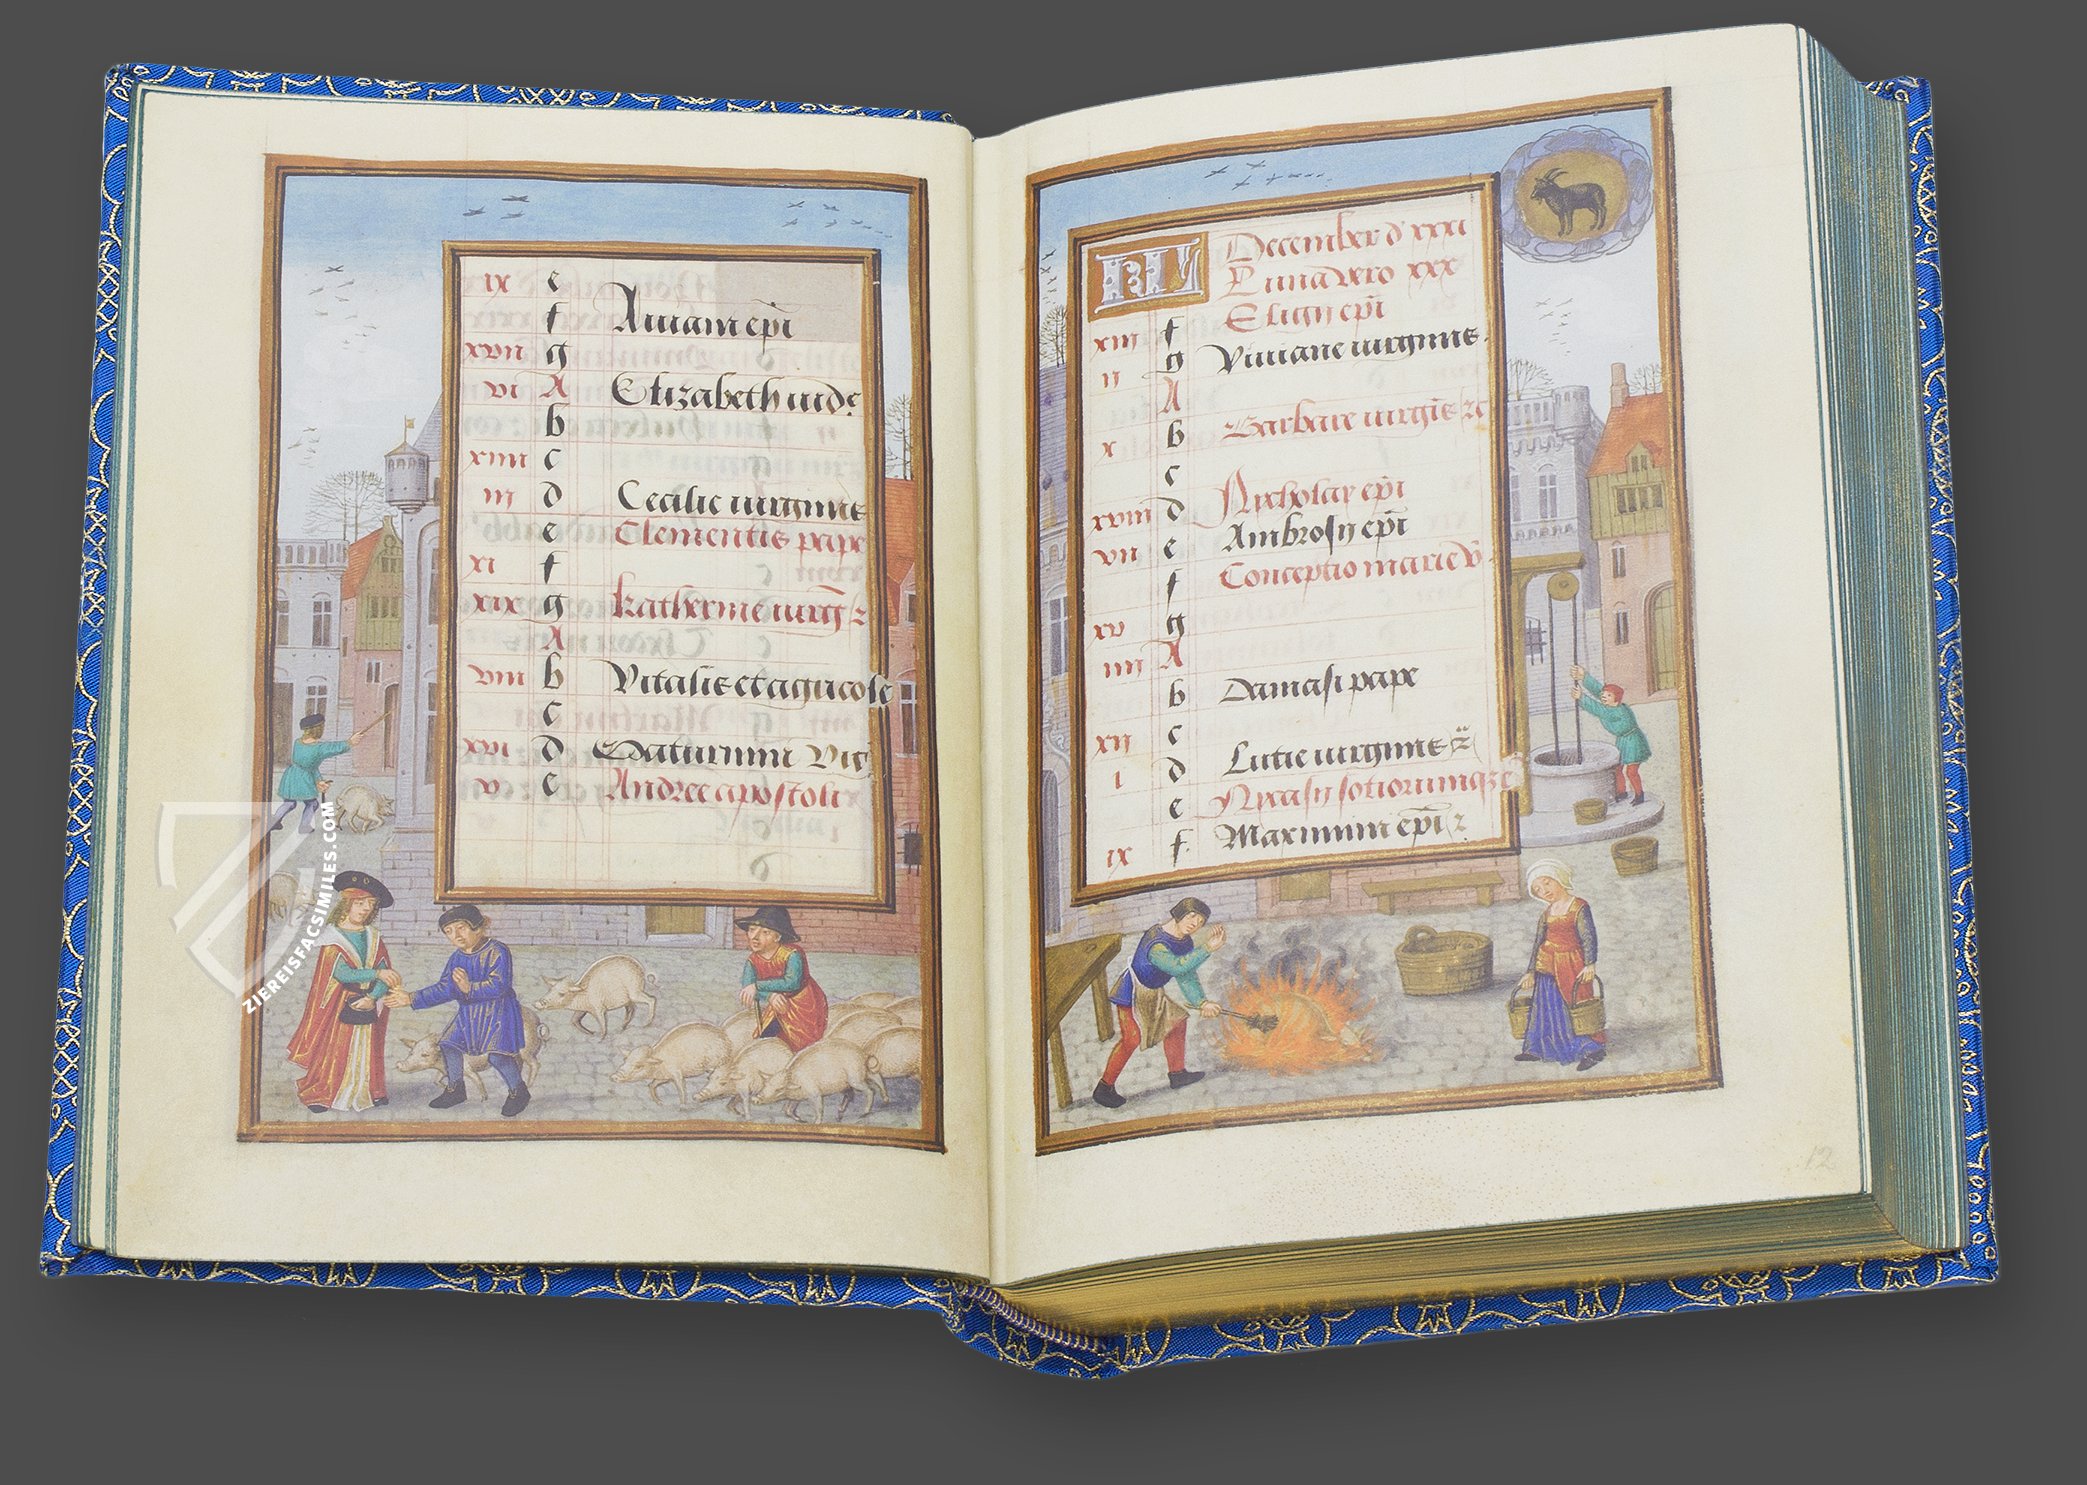 ix e
f Aniani epi
xvii g
vi A Elizabeth vid
b
xiiii c
iii d Cecilie virginis
e Clementis pape
xi f
xix g Katherine virg
A
viii b Vitalis et agricole
c
xvi d Saturnini Vig
v e Andree apostoli
KL December d xxxi
Luna vero xxx
xiii f Eligij epi
ii g Viviane virginis
A
x b Barbare virgis
c
xviii d Nicholay epi
vii e Ambrosij epi
f Conceptio marie v
xv g
iiii A
b Damasi pape
xii c
i d Lucie virginis
e Nicasij sotiorumqz
ix f Maximini epi
12
ZIEREISFACSIMILES.COM